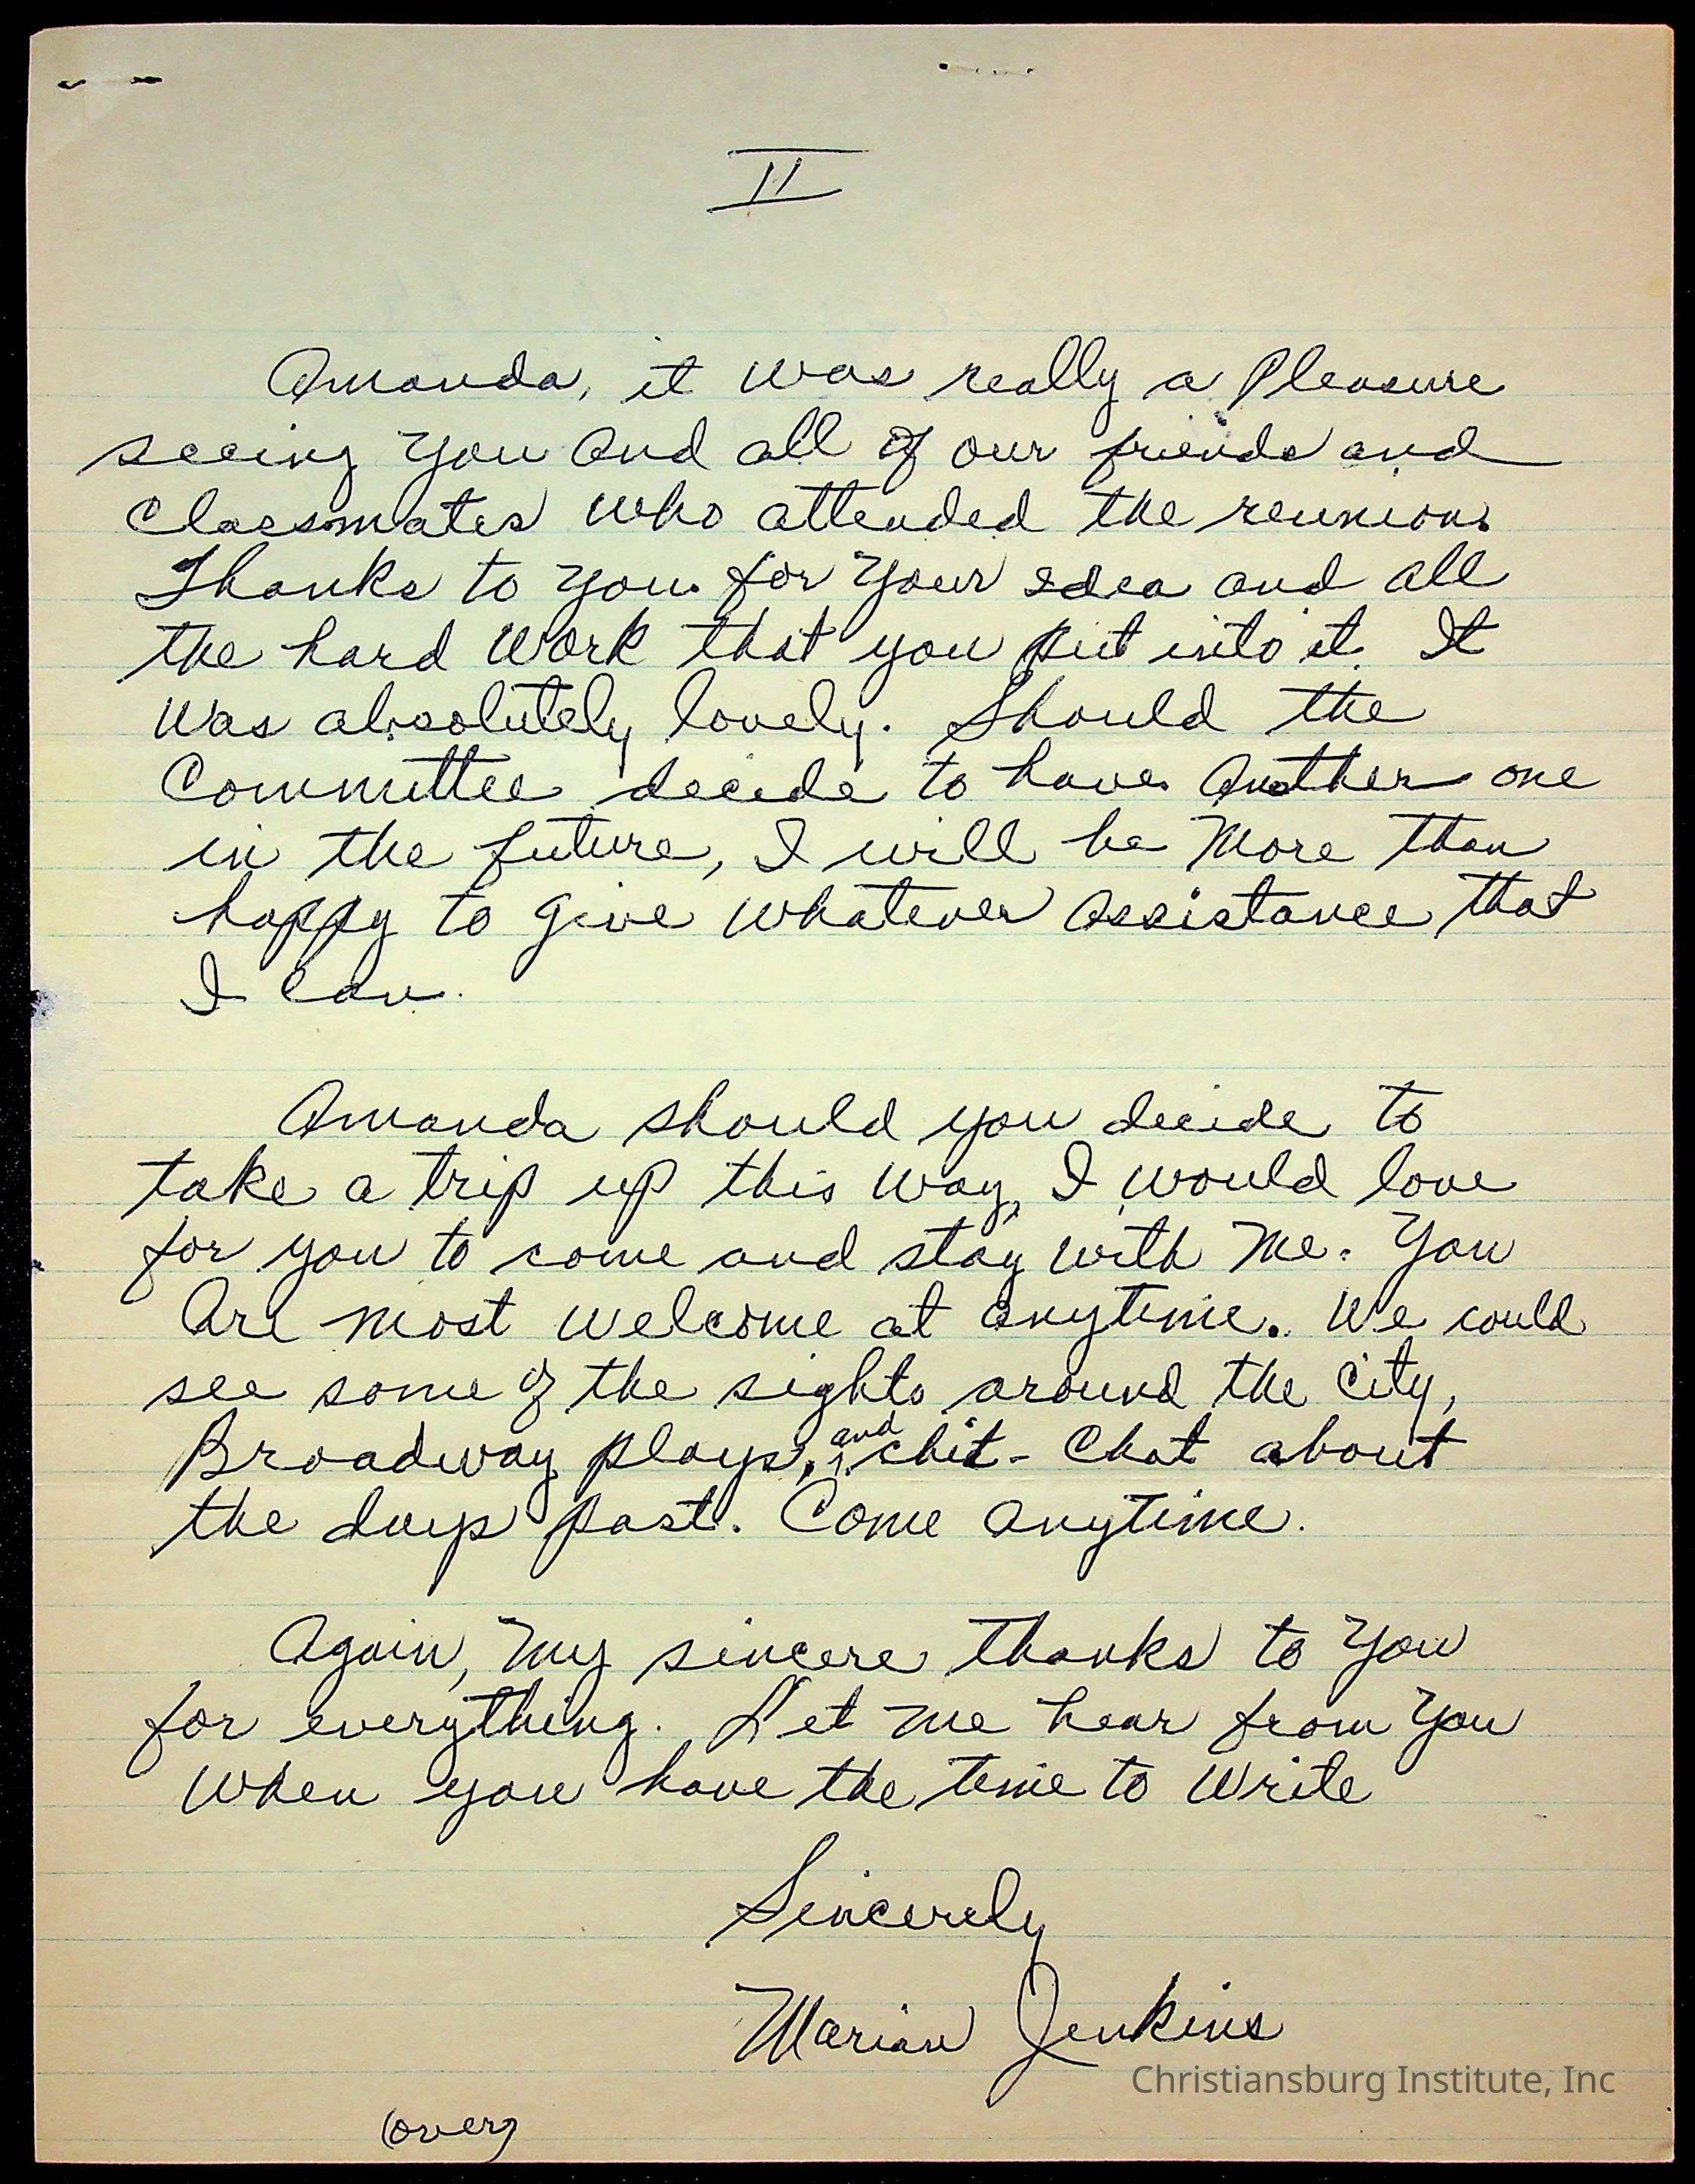 II
Amanda, it was really a Pleasure
seeing you and all of our friends and
classmates who attended the reunion.
Thanks to you for your idea and all
the hard work that you put into it. It
was absolutely lovely. Should the
Committee decide to have another one
in the future, I will be more than
happy to give whatever assistance that
I can.
Amanda should you decide to
take a trip up this way, I would love
for you to come and stay with me. You
are most welcome at anytime. We could
see some of the sights around the city,
Broadway plays, and chit-chat about
the days past. Come anytime.
Again, my sincere thanks to you
for everything. Let me hear from you
when you have the time to write
Sincerely
Marian Jenkins
Christiansburg Institute, Inc
(over)